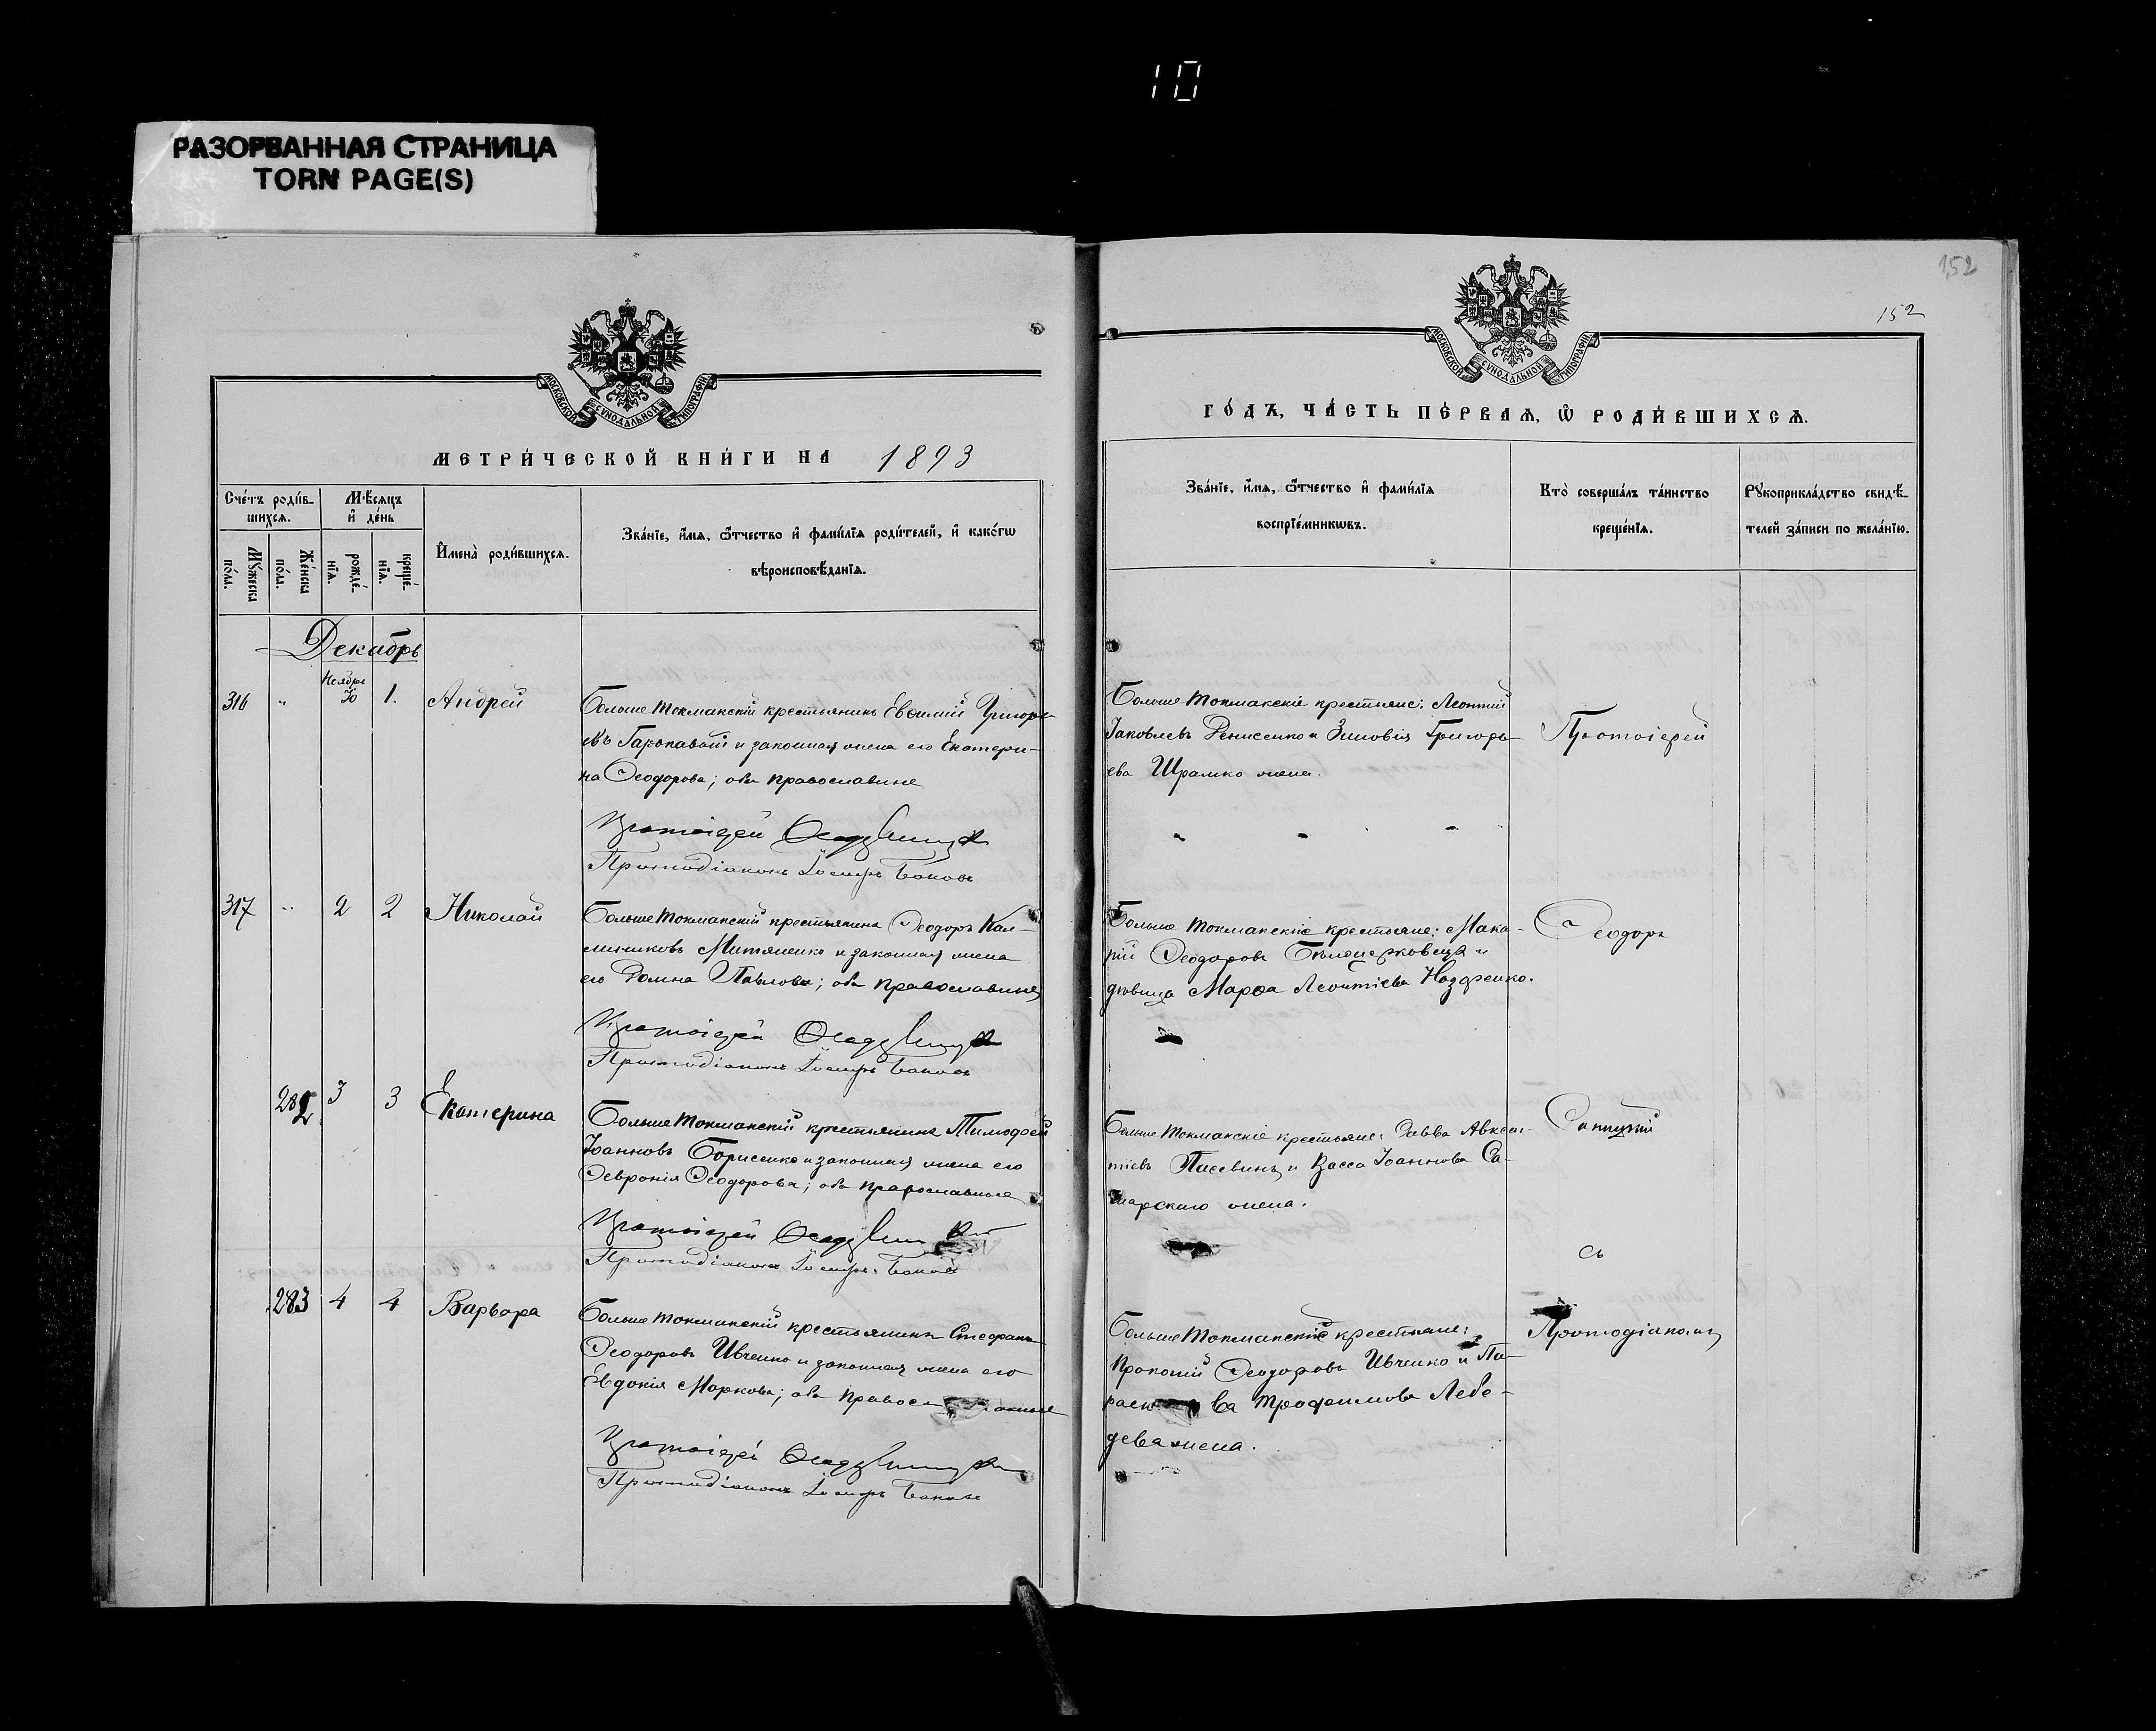 10
РАЗОРВАННАЯ СТРАНИЦА
TORN PAGE(S)
152
152
МОСКОВСКОЙ СѴНОДАЛЬНОЙ ТИПОГРАФІИ
МОСКОВСКОЙ СѴНОДАЛЬНОЙ ТИПОГРАФІИ
МЕТРИ́ЧЕСКОЙ КНИ́ГИ НА 1893
ГО́ДЪ, ЧА́СТЬ ПЕ́РВАЯ, Ѡ РОДИ́ВШИХСѦ.
Сче́тъ роди́в-
шихсѧ.
Мѣ́сѧцъ
и҆ де́нь
Мꙋ́жеска
по́ла.
Же́нска
по́ла.
рожде́-
нїѧ.
креще́-
нїѧ.
И҆мена̀ роди́вшихсѧ.
Зва́нїе, и҆́мѧ, ѻ҆́тчество и҆ фами́лїѧ роди́телей, и҆ како́гѡ
вѣроисповѣ́данїѧ.
Зва́нїе, и҆́мѧ, ѻ҆́тчество и҆ фами́лїѧ
воспрїе́мникѡвъ.
Кто̀ соверша́лъ та́инство
креще́нїѧ.
Рꙋкоприкла́дство свидѣ́-
телей за́писи по жела́нїю.
Декабрь
Ноября
316 " 30 1. Андрей
Больше Токмакскій крестьянинъ Евѳимій Григорь-
евъ и законная жена его Екатери-
на Ѳеодорова; оба православные
Протоіерей
Протодіаконъ Іосифъ
Больше Токмакскіе крестьяне: Леонтій
Іаковлевъ Денисенко и Зиновія Григорь-
ева Шрамко жена.
Протоіерей
317 " 2 2 Николай
Больше Токмакскій крестьянинъ Ѳеодоръ Кал-
линиковъ Митяшенко и законная жена
его Домна Павлова; оба православные
Протоіерей
Протодіаконъ Іосифъ
Больше Токмакскіе крестьяне: Мака-
рій Ѳеодоровъ Бѣлоцерковецъ и
дѣвица Марѳа Леонтіева Назаренко.
Ѳеодоръ
282 3 3 Екатерина
Больше Токмакскій крестьянинъ Тимоѳей
Іоанновъ Борисенко и законная жена его
Ѳевронія Ѳеодорова; оба православные
Протоіерей
Протодіаконъ Іосифъ
Больше Токмакскіе крестьяне: Савва Авксен-
тіевъ и Васса Іоаннова Са-
марскаго жена.
съ
283 4 4 Варвара
Больше Токмакскій крестьянинъ Стефанъ
Ѳеодоровъ Ивченко и законная жена его
Евдокія Маркова; оба
Протоіерей
Протодіаконъ Іосифъ
Больше Токмакскіе крестьяне:
Прокопій Ѳеодоровъ Ивченко и Па-
Трофимова Лебе-
дева жена.
Протодіакономъ